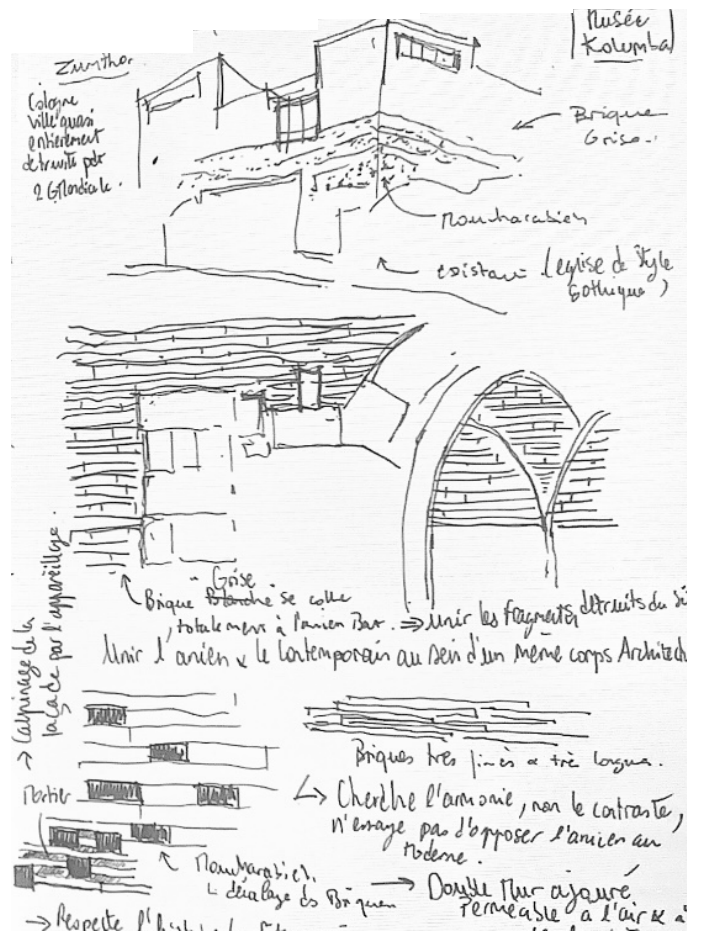 Musée
Kolumba
Zumthor
Cologne
ville quasi
entièrement
detruite par
2 G Mondiale.
Brique
Grise.
Moucharabieh
existant (eglise de style
Gothique)
Grise
Brique Blanche se colle
totalement à l'ancien Bat. ⇒ Unir les fragments détruits du si
Unir l'ancien & le Contemporain au sein d'un même corps Architec
→ Calpinage de la
façade par l'appareillage.
Briques très fines & très longues.
Mortier
↳ Cherche l'armonie, non le contraste,
n'essaye pas d'opposer l'ancien au
Moderne.
Moucharabieh
↳ décalage des Briques
→ Double Mur ajouré
Permeable à l'air & à
→ Respecte l'